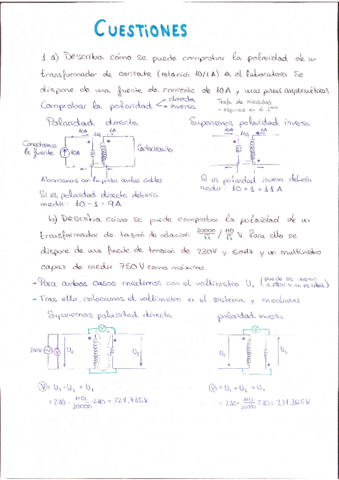 CUESTIONES
1 a) Describa cómo se puede comprobar la polaridad de un
transformador de corriente (relación 10/1A) en el laboratorio. Se
dispone de una fuente de corriente de 10A y unas pinzas amperimétricas.
Comprobar la polaridad directa
inversa
Polaridad directa
Suponemos polaridad inversa
10A 1A
10A 1A
Conectamos
la fuente
10A
Cortocircuito
Abarcamos con la pinza ambos cables
Si es polaridad directa debería
medir: 10-1 = 9A
Si es polaridad inversa debería
medir: 10+1 = 11A
b) Describa cómo se puede comprobar la polaridad de un
transformador de tensión de relación 20000/√3 / 110/√3 V. Para ello se
dispone de una fuente de tensión de 230V y 50Hz y un multímetro
capaz de medir 750V como máximo.
→ Para ambos casos medimos con el voltímetro U₁
→ Tras ello, colocamos el voltímetro en el sistema y medimos
Suponemos polaridad directa
polaridad inversa
V
V
230V
U₁
U₂
U₁
U₂
V = U₁ - U₂ = Uₓ
= 230 - 110/20000 · 230 = 228,735V
V = U₁ + U₂ =
= 230 + 110/20000 · 230 = 231,265V